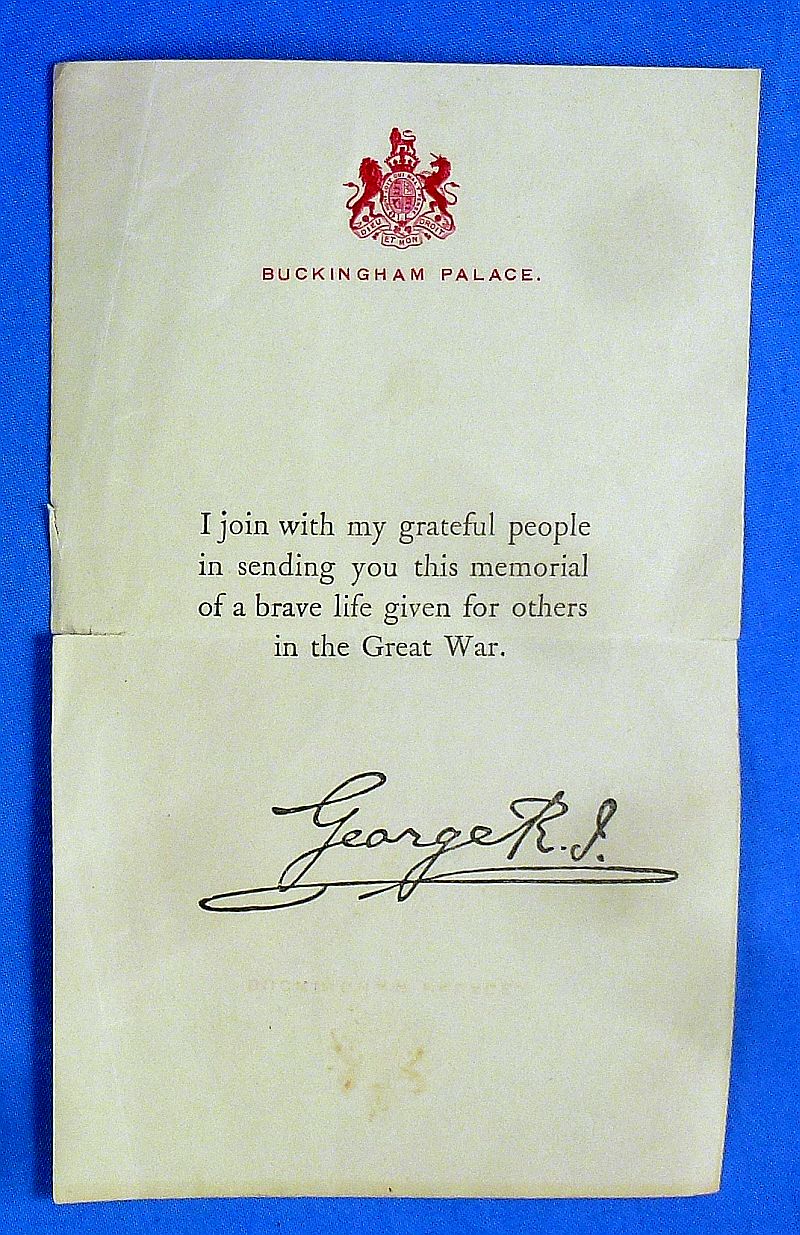 DIEU
ET MON
DROIT
BUCKINGHAM PALACE.
I join with my grateful people
in sending you this memorial
of a brave life given for others
in the Great War.
George R.I.